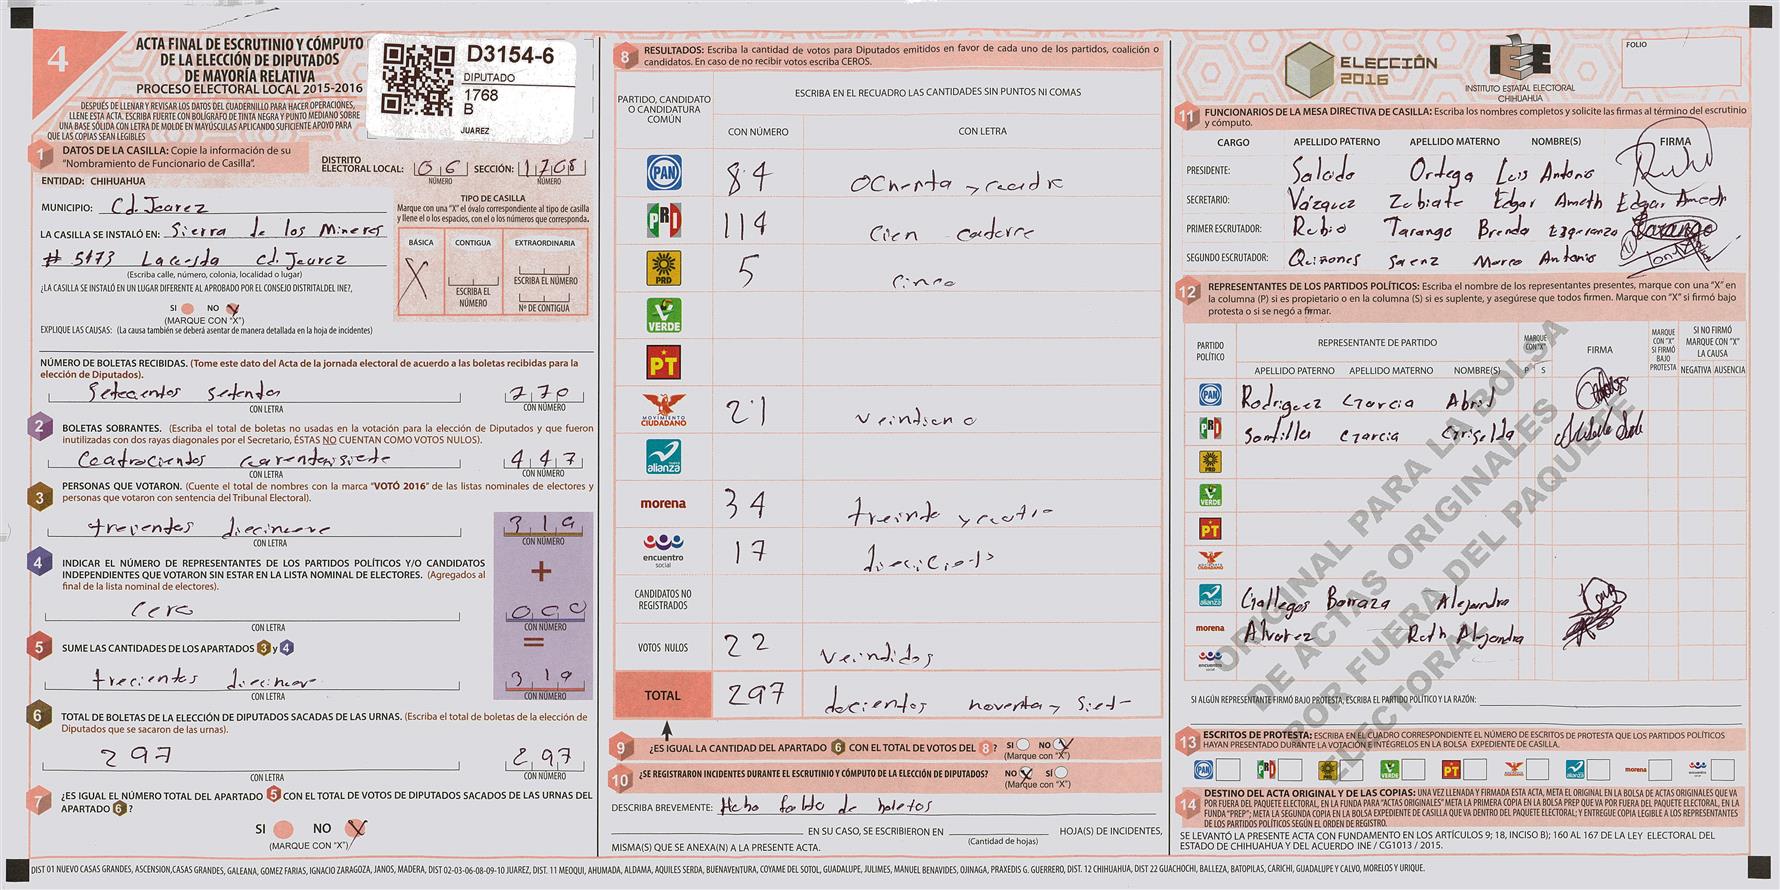 4
ACTA FINAL DE ESCRUTINIO Y CÓMPUTO
DE LA ELECCIÓN DE DIPUTADOS
DE MAYORÍA RELATIVA
PROCESO ELECTORAL LOCAL 2015-2016
DESPUÉS DE LLENAR Y REVISAR LOS DATOS DEL CUADERNILLO PARA HACER OPERACIONES,
LLENE ESTA ACTA. ESCRIBA FUERTE CON BOLÍGRAFO DE TINTA NEGRA Y PUNTO MEDIANO SOBRE
UNA BASE SÓLIDA CON LETRA DE MOLDE EN MAYÚSCULAS APLICANDO SUFICIENTE APOYO PARA
QUE LAS COPIAS SEAN LEGIBLES
D3154-6
DIPUTADO
1768
B
JUAREZ
1 DATOS DE LA CASILLA: Copie la información de su
"Nombramiento de Funcionario de Casilla".
DISTRITO
ELECTORAL LOCAL: 06 SECCIÓN: 1768
NÚMERO NÚMERO
ENTIDAD: CHIHUAHUA
MUNICIPIO: Cd. Juarez
LA CASILLA SE INSTALÓ EN: Sierra de los Mineros
# 5173 La cuesta Cd. Juarez
(Escriba calle, número, colonia, localidad o lugar)
TIPO DE CASILLA
Marque con una "X" el óvalo correspondiente al tipo de casilla
y llene el o los espacios, con el o los números que corresponda.
BÁSICA CONTIGUA EXTRAORDINARIA
X
ESCRIBA EL NÚMERO
ESCRIBA EL NÚMERO
Nº DE CONTIGUA
¿LA CASILLA SE INSTALÓ EN UN LUGAR DIFERENTE AL APROBADO POR EL CONSEJO DISTRITAL DEL INE?,
SI NO X
(MARQUE CON "X")
EXPLIQUE LAS CAUSAS: (La causa también se deberá asentar de manera detallada en la hoja de incidentes)
NÚMERO DE BOLETAS RECIBIDAS. (Tome este dato del Acta de la jornada electoral de acuerdo a las boletas recibidas para la
elección de Diputados).
Setecientos setenta 770
CON LETRA CON NÚMERO
2 BOLETAS SOBRANTES. (Escriba el total de boletas no usadas en la votación para la elección de Diputados y que fueron
inutilizadas con dos rayas diagonales por el Secretario, ÉSTAS NO CUENTAN COMO VOTOS NULOS).
Cuatrocientos cuarentaisiete 447
CON LETRA CON NÚMERO
3 PERSONAS QUE VOTARON. (Cuente el total de nombres con la marca "VOTÓ 2016" de las listas nominales de electores y
personas que votaron con sentencia del Tribunal Electoral).
trecientos diecinueve 319
CON LETRA CON NÚMERO
+
4 INDICAR EL NÚMERO DE REPRESENTANTES DE LOS PARTIDOS POLÍTICOS Y/O CANDIDATOS
INDEPENDIENTES QUE VOTARON SIN ESTAR EN LA LISTA NOMINAL DE ELECTORES. (Agregados al
final de la lista nominal de electores).
cero 000
CON LETRA CON NÚMERO
=
5 SUME LAS CANTIDADES DE LOS APARTADOS 3 y 4
trecientos diecinueve 319
CON LETRA CON NÚMERO
6 TOTAL DE BOLETAS DE LA ELECCIÓN DE DIPUTADOS SACADAS DE LAS URNAS. (Escriba el total de boletas de la elección de
Diputados que se sacaron de las urnas).
297 297
CON LETRA CON NÚMERO
7 ¿ES IGUAL EL NÚMERO TOTAL DEL APARTADO 5 CON EL TOTAL DE VOTOS DE DIPUTADOS SACADOS DE LAS URNAS DEL
APARTADO 6?
SI NO X
(MARQUE CON "X")
8 RESULTADOS: Escriba la cantidad de votos para Diputados emitidos en favor de cada uno de los partidos, coalición o
candidatos. En caso de no recibir votos escriba CEROS.
PARTIDO, CANDIDATO
O CANDIDATURA
COMÚN
ESCRIBA EN EL RECUADRO LAS CANTIDADES SIN PUNTOS NI COMAS
CON NÚMERO CON LETRA
PAN 84 Ochenta y cuatro
PRI 114 Cien catorce
PRD 5 cinco
VERDE
PT
MOVIMIENTO CIUDADANO 21 veintiuno
alianza
morena 34 treinta y cuatro
encuentro social 17 diecisiete
CANDIDATOS NO
REGISTRADOS
VOTOS NULOS 22 veintidos
TOTAL 297 docientos noventa y siete
9 ¿ES IGUAL LA CANTIDAD DEL APARTADO 6 CON EL TOTAL DE VOTOS DEL 8? SI NO X
(Marque con "X")
10 ¿SE REGISTRARON INCIDENTES DURANTE EL ESCRUTINIO Y CÓMPUTO DE LA ELECCIÓN DE DIPUTADOS? NO X SÍ
(Marque con "X")
DESCRIBA BREVEMENTE: Hubo falta de boletas
EN SU CASO, SE ESCRIBIERON EN HOJA(S) DE INCIDENTES,
(Cantidad de hojas)
MISMA(S) QUE SE ANEXA(N) A LA PRESENTE ACTA.
ELECCIÓN
2016
IEE
INSTITUTO ESTATAL ELECTORAL
CHIHUAHUA
FOLIO
11 FUNCIONARIOS DE LA MESA DIRECTIVA DE CASILLA: Escriba los nombres completos y solicite las firmas al término del escrutinio
y cómputo.
CARGO APELLIDO PATERNO APELLIDO MATERNO NOMBRE(S) FIRMA
PRESIDENTE: Salcido Ortega Luis Antonio
SECRETARIO: Vázquez Zubiate Edgar Ameth Edgar Ameth
PRIMER ESCRUTADOR: Rubio Tarango Brenda Esperanza Tarango
SEGUNDO ESCRUTADOR: Quiñones Saenz Marco Antonio
12 REPRESENTANTES DE LOS PARTIDOS POLÍTICOS: Escriba el nombre de los representantes presentes, marque con una "X" en
la columna (P) si es propietario o en la columna (S) si es suplente, y asegúrese que todos firmen. Marque con "X" si firmó bajo
protesta o si se negó a firmar.
PARTIDO
POLÍTICO
REPRESENTANTE DE PARTIDO
APELLIDO PATERNO APELLIDO MATERNO NOMBRE(S)
MARQUE CON "X"
P S
FIRMA
MARQUE CON "X" SI FIRMÓ BAJO PROTESTA
SI NO FIRMÓ MARQUE CON "X" LA CAUSA
NEGATIVA AUSENCIA
PAN Rodriguez Garcia Abril
PRI Santillan Garcia Griselda
PRD
VERDE
PT
MOVIMIENTO CIUDADANO
alianza Gallegos Barraza Alejandra
morena Alvarez Ruth Alejandra
encuentro social
ORIGINAL PARA LA BOLSA
DE ACTAS ORIGINALES
POR FUERA DEL PAQUETE
ELECTORAL
SI ALGÚN REPRESENTANTE FIRMÓ BAJO PROTESTA, ESCRIBA EL PARTIDO POLÍTICO Y LA RAZÓN:
13 ESCRITOS DE PROTESTA: ESCRIBA EN EL CUADRO CORRESPONDIENTE EL NÚMERO DE ESCRITOS DE PROTESTA QUE LOS PARTIDOS POLÍTICOS
HAYAN PRESENTADO DURANTE LA VOTACIÓN E INTÉGRELOS EN LA BOLSA EXPEDIENTE DE CASILLA.
PAN PRI PRD VERDE PT alianza morena
14 DESTINO DEL ACTA ORIGINAL Y DE LAS COPIAS: UNA VEZ LLENADA Y FIRMADA ESTA ACTA, META EL ORIGINAL EN LA BOLSA DE ACTAS ORIGINALES QUE VA
POR FUERA DEL PAQUETE ELECTORAL, EN LA FUNDA PARA "ACTAS ORIGINALES" META LA PRIMERA COPIA EN LA BOLSA PREP QUE VA POR FUERA DEL PAQUETE ELECTORAL, EN LA
FUNDA "PREP"; META LA SEGUNDA COPIA EN LA BOLSA EXPEDIENTE DE CASILLA QUE VA DENTRO DEL PAQUETE ELECTORAL; Y ENTREGUE COPIA LEGIBLE A LOS REPRESENTANTES
DE LOS PARTIDOS POLÍTICOS SEGÚN EL ORDEN DE REGISTRO.
SE LEVANTÓ LA PRESENTE ACTA CON FUNDAMENTO EN LOS ARTÍCULOS 9; 18, INCISO B); 160 AL 167 DE LA LEY ELECTORAL DEL
ESTADO DE CHIHUAHUA Y DEL ACUERDO INE / CG1013 / 2015.
DIST 01 NUEVO CASAS GRANDES, ASCENSION, CASAS GRANDES, GALEANA, GOMEZ FARIAS, IGNACIO ZARAGOZA, JANOS, MADERA, DIST 02-03-06-08-09-10 JUAREZ, DIST. 11 MEOQUI, AHUMADA, ALDAMA, AQUILES SERDA, BUENAVENTURA, COYAME DEL SOTOL, GUADALUPE, JULIMES, MANUEL BENAVIDES, OJINAGA, PRAXEDIS G. GUERRERO, DIST. 12 CHIHUAHUA, DIST 22 GUACHOCHI, BALLEZA, BATOPILAS, CARICHI, GUADALUPE Y CALVO, MORELOS Y URIQUE.